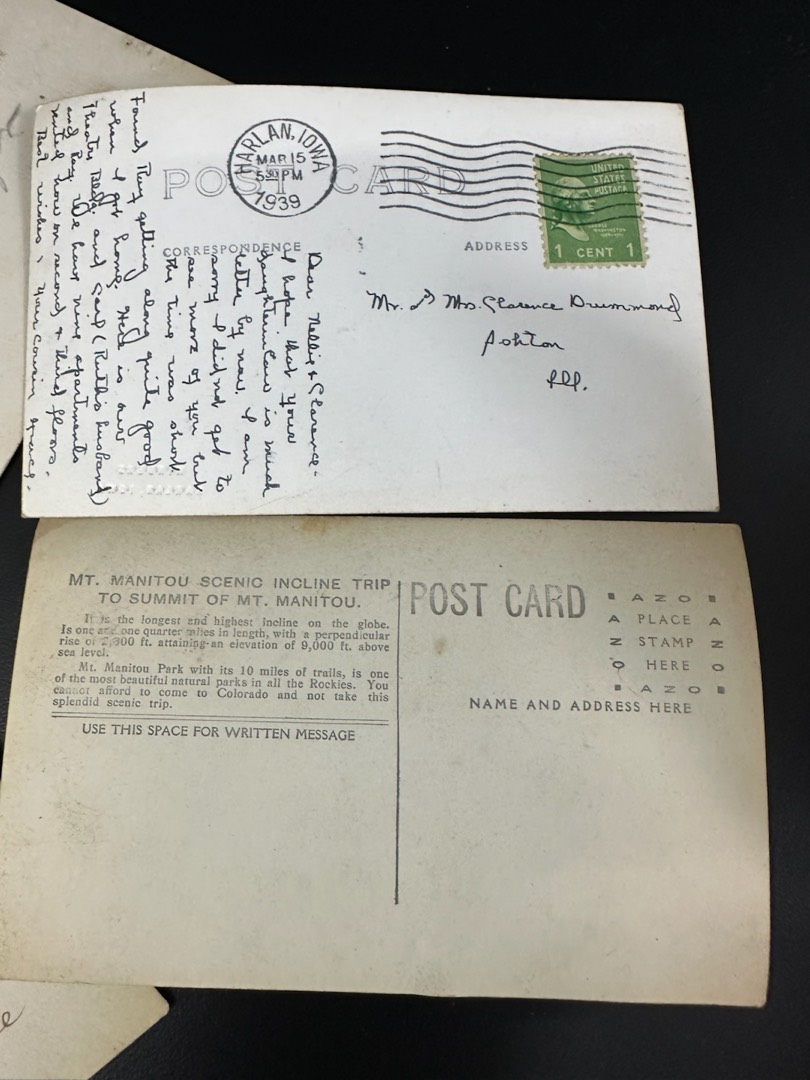 HARLAN, IOWA
MAR 15
5 30 PM
1939
POST CARD
UNITED
STATES
POSTAGE
GEORGE
WASHINGTON
1 CENT 1
CORRESPONDENCE
ADDRESS
Dear Nellie & Clarence-
I hope that your
daughterinlaw is much
better by now. I am
sorry I did not get to
see more of you but
the time was short
Found Ray getting along quite good
when I got home. Here is our
Theatre Bldg and Carl (Ruth's husband)
and Ray. We have nine apartments
rented now on second & third floors.
Best wishes, your cousin Grace-
Mr. & Mrs. Clarence Drummond
Ashton
Ill.
MT. MANITOU SCENIC INCLINE TRIP
TO SUMMIT OF MT. MANITOU.
It is the longest and highest incline on the globe.
Is one and one quarter miles in length, with a perpendicular
rise of 2,300 ft. attaining an elevation of 9,000 ft. above
sea level.
Mt. Manitou Park with its 10 miles of trails, is one
of the most beautiful natural parks in all the Rockies. You
cannot afford to come to Colorado and not take this
splendid scenic trip.
USE THIS SPACE FOR WRITTEN MESSAGE
POST CARD
AZO
A PLACE A
Z STAMP Z
O HERE O
AZO
NAME AND ADDRESS HERE